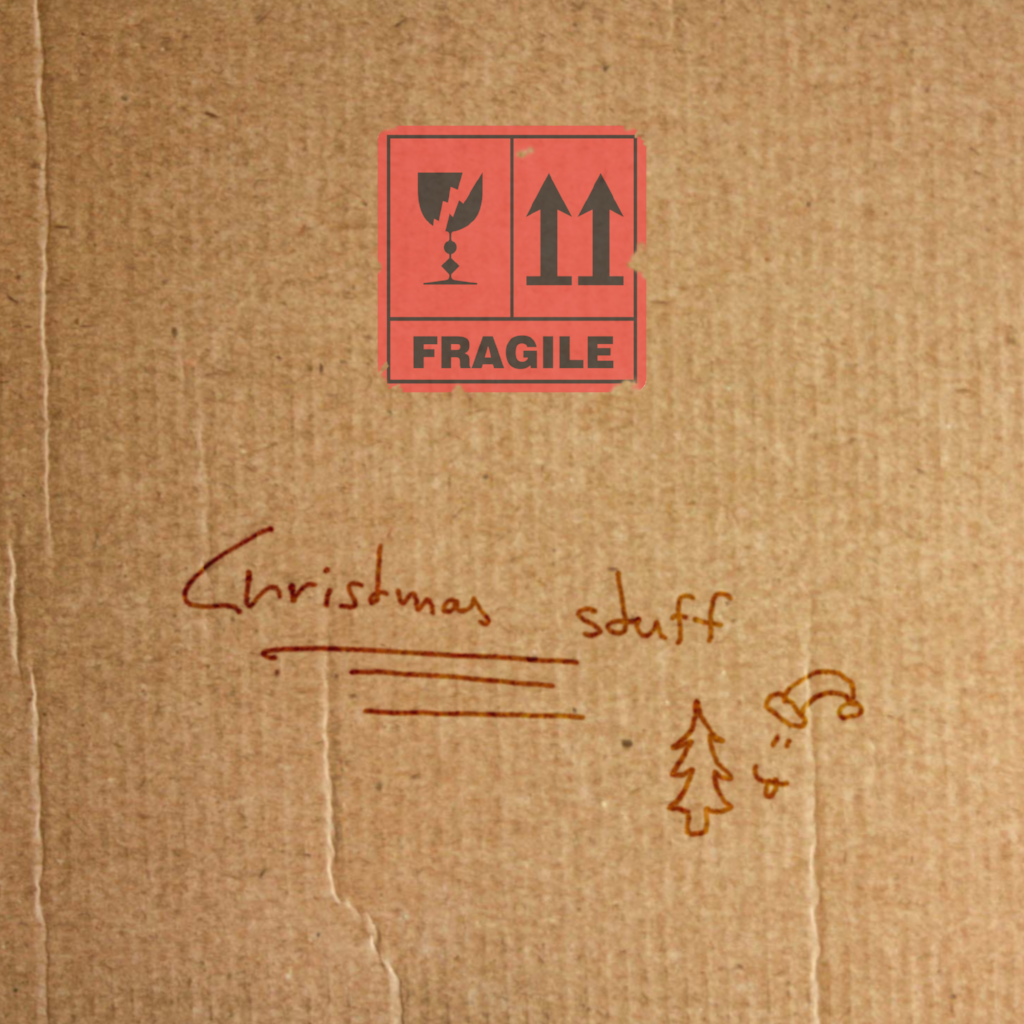 FRAGILE
Christmas stuff